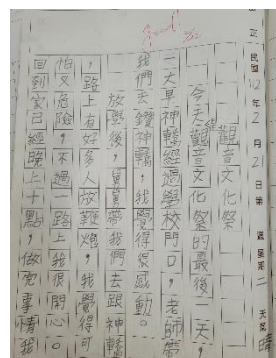 民國112年2月21日 第 週星期二 天氣晴
觀音文化祭
今天觀音文化祭的最後一天,
一大早神轎經過學校門口,老師帶
我們去鑽神轎,我覺得很感動。
放學後,舅舅帶我們去跟神轎
,路上有好多人放鞭炮,我覺得可
怕又危險,不過一路上我很開心。
回到家已經晚上十點,做完事情我